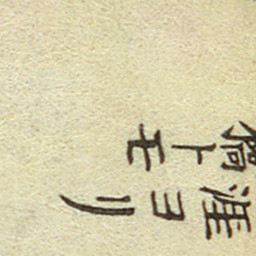 涯ヨリ
トモ